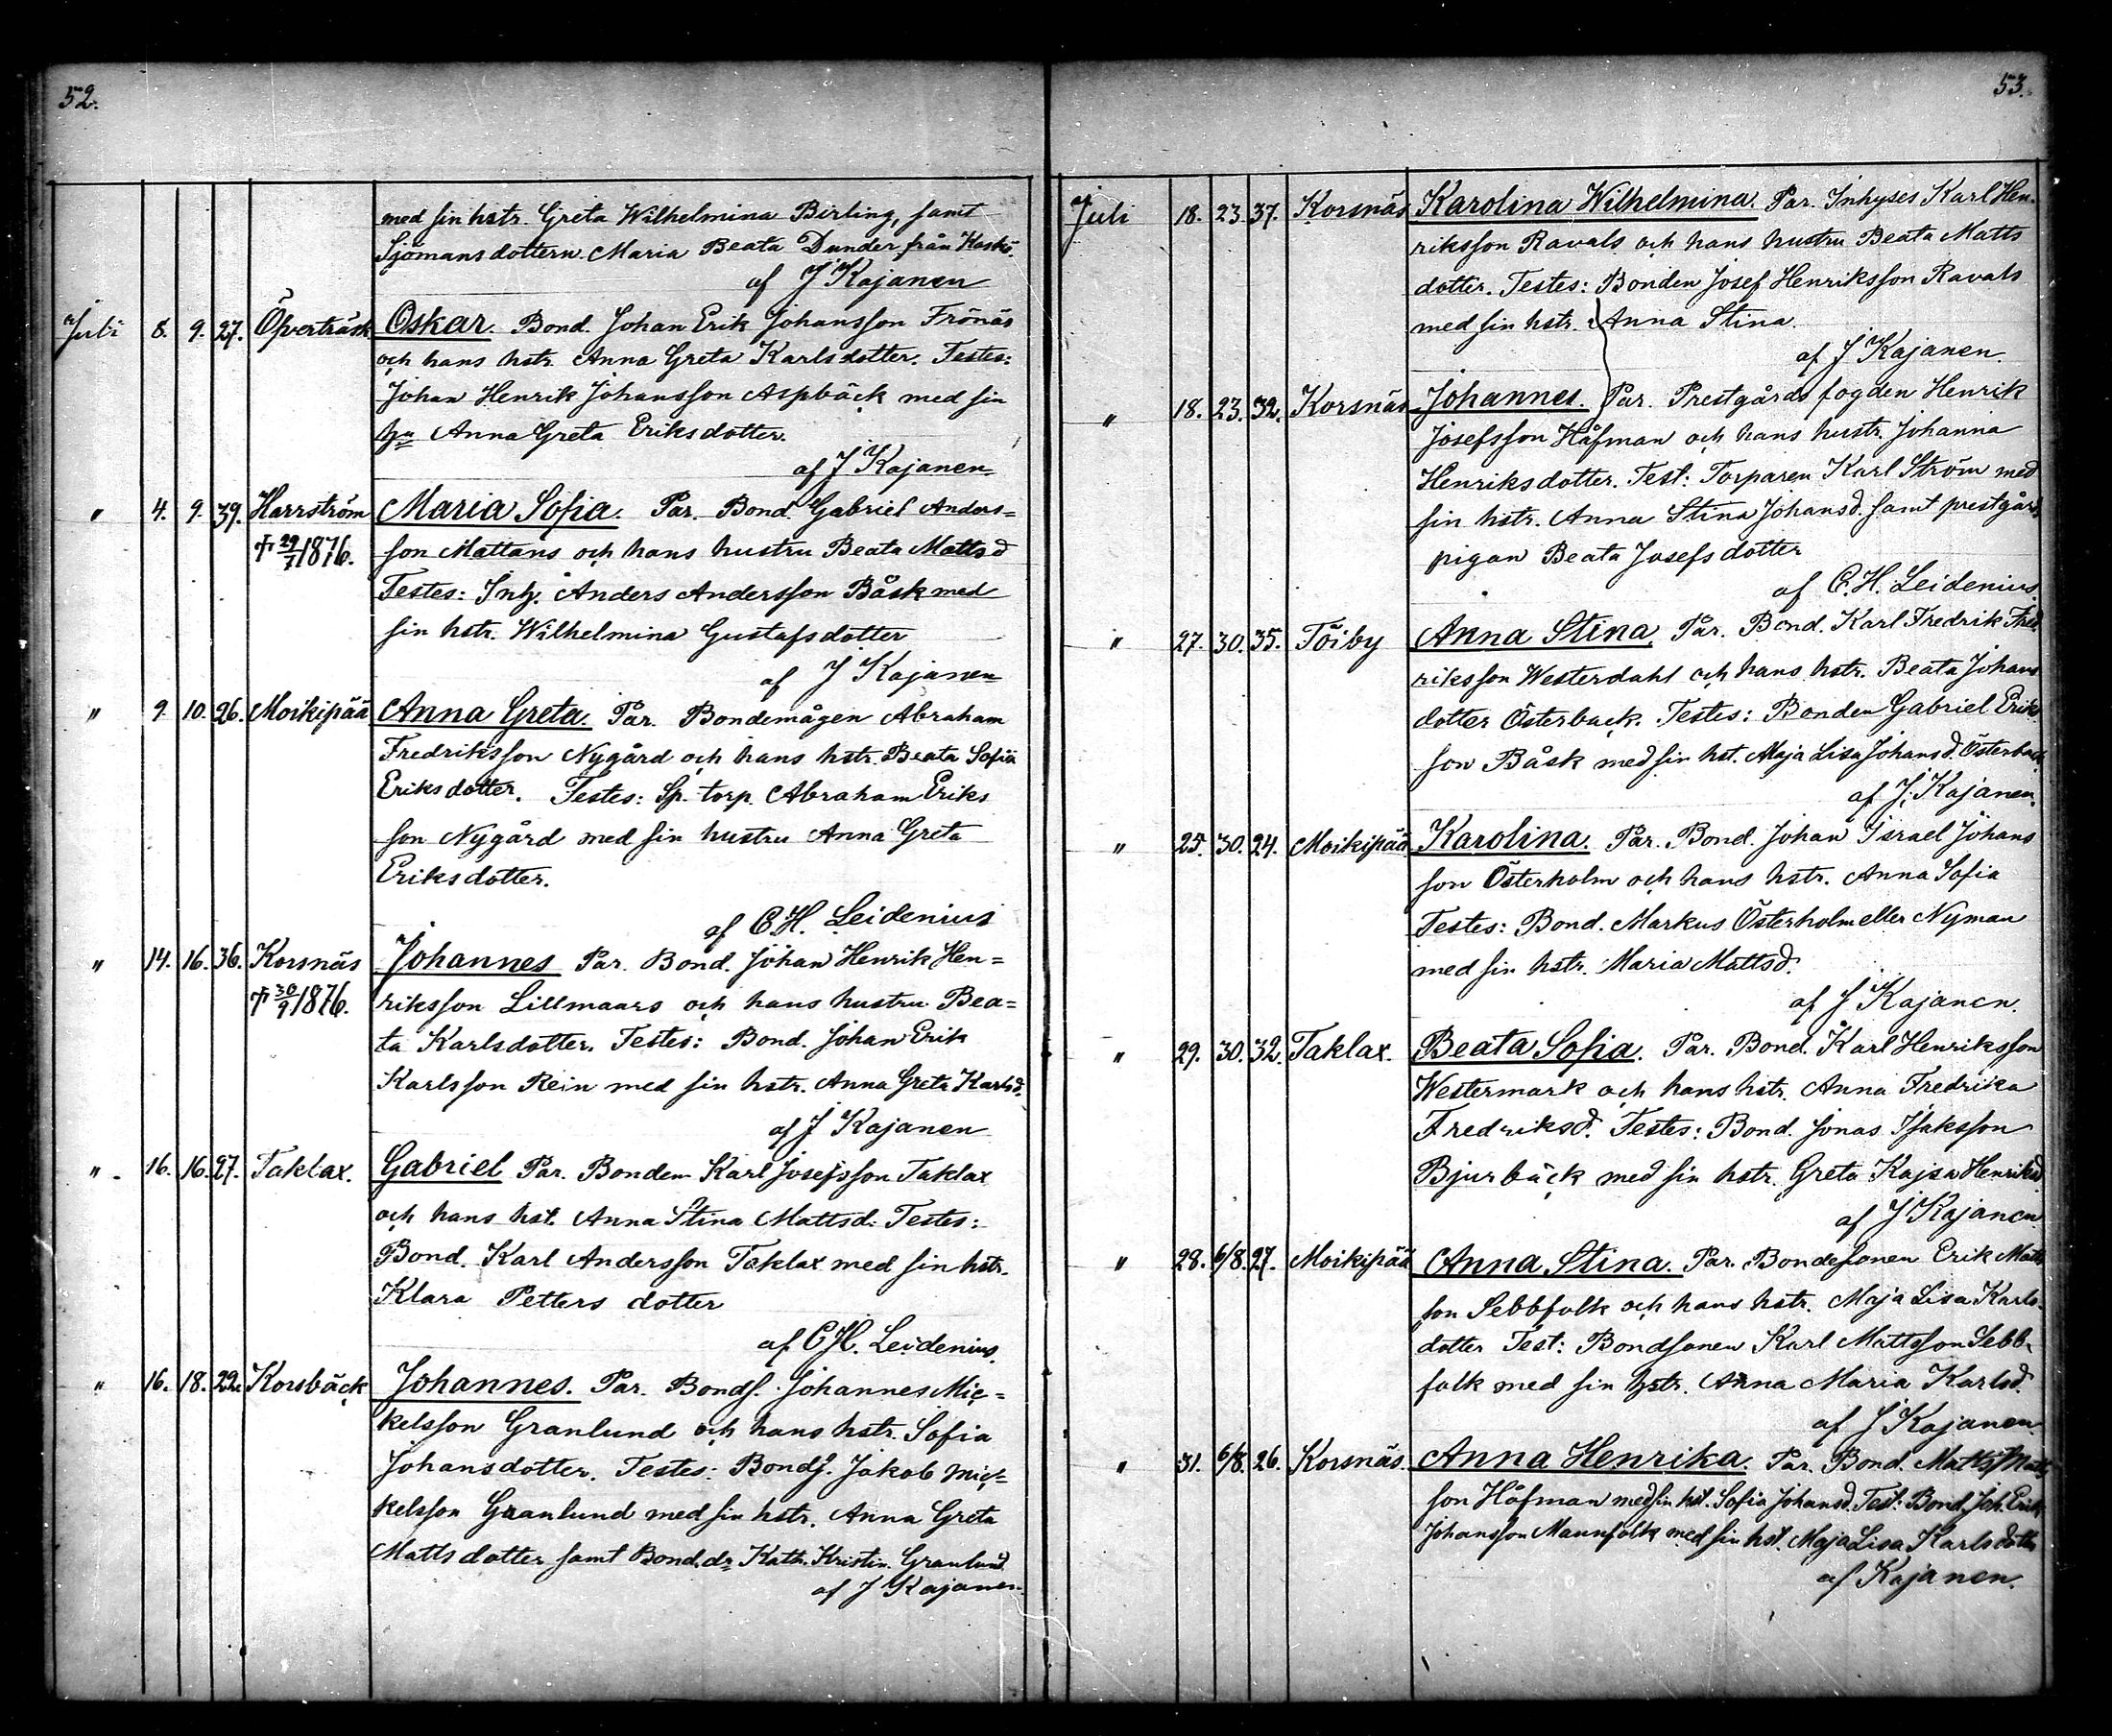 52.
med sin hstr. Greta Wilhelmina Birling, samt
Sjömansdottern Maria Beata Dunder från Kaskö.
af J Kajanen
Juli 8. 9. 27. Öfverträsk Oskar. Bond. Johan Erik Johansson Frönäs
och hans hstr. Anna Greta Karlsdotter. Testes:
Johan Henrik Johansson Aspbäck med sin
hu Anna Greta Eriksdotter.
af J Kajanen
" 4. 9. 39. Harrström Maria Sofia. Par. Bond. Gabriel Anders=
† 29/7 1876. son Mattans och hans hustru Beata Mattsd
Testes: Inh. Anders Andersson Båsk med
sin hstr. Wilhelmina Gustafsdotter
af J Kajanen
" 9. 10. 26. Moikipää Anna Greta. Par. Bondemågen Abraham
Fredriksson Nygård och hans hstr. Beata Sofia
Eriksdotter. Testes: Sp. torp. Abraham Eriks
son Nygård med sin hustru Anna Greta
Eriksdotter.
af C.H. Leidenius
" 14. 16. 36. Korsnäs Johannes Par. Bond. Johan Henrik Hen=
† 30/9 1876. riksson Lillmaars och hans hustru Bea=
ta Karlsdotter. Testes: Bond. Johan Erik
Karlsson Rein med sin hstr. Anna Greta Karlsd.
af J Kajanen
" 16. 16. 27. Taklax. Gabriel Par. Bonden Karl Josefsson Taklax
och hans hst. Anna Stina Mattsd: Testes:
Bond. Karl Andersson Taklax med sin hstr.
Klara Petters dotter
af C.H. Leidenius.
" 16. 18. 22. Korsbäck Johannes. Par. Bonds. Johannes Mic=
kelsson Granlund och hans hstr. Sofia
Johansdotter. Testes: Bonds. Jakob Mic=
kelsson Granlund med sin hstr. Anna Greta
Mattsdotter samt Bond.dr Kath. Kristin. Granlund
af J Kajanen
53.
Juli 18. 23. 37. Korsnäs Karolina Wilhelmina. Par. Inhyses Karl Hen=
riksson Ravals och hans hustru Beata Matts
dotter. Testes: Bonden Josef Henriksson Ravals
med sin hstr. Anna Stina.
af J Kajanen.
" 18. 23. 32. Korsnäs Johannes. Par. Prestgårds fogden Henrik
Josefsson Håfman och hans hustr. Johanna
Henriksdotter. Test: Torparen Karl Ström med
sin hstr. Anna Stina Johansd. samt prestgårds
pigan Beata Josefsdotter
af C.H. Leidenius.
" 27. 30. 35. Töiby Anna Stina. Par. Bond. Karl Fredrik Fred
riksson Westerdahl och hans hstr. Beata Johans
dotter Österback. Testes: Bonden Gabriel Eriks
son Båsk med sin hst. Maja Lisa Johansd. Österback.
af J. Kajanen.
" 25. 30. 24. Moikipää Karolina. Par. Bond. Johan Israel Johans
son Österholm och hans hstr. Anna Sofia
Testes: Bond. Markus Österholm eller Nyman
med sin hstr. Maria Mattsd.
af J Kajanen.
" 29. 30. 32. Taklax. Beata Sofia. Par. Bond. Karl Henriksson
Westermark och hans hstr. Anna Fredrika
Fredriksd. Testes: Bond. Jonas Isaksson
Bjurbäck med sin hstr. Greta Kajsa Henriksd
af J Kajanen
" 28. 6/8. 27. Moikipää Anna Stina. Par. Bondesonen Erik Matts
son Sebbfolk och hans hstr. Maja Lisa Karls-
dotter Test: Bondsonen Karl Mattsson Sebb-
folk med sin hstr. Anna Maria Karlsd.
af J Kajanen.
" 31. 6/8. 26. Korsnäs. Anna Henrika. Par. Bond. Matts Matts
son Håfman med sin hst. Sofia Johansd. Test: Bond. Joh. Erik
Johansson Mannfolk med sin hst. Maja Lisa Karlsdotter
af Kajanen.